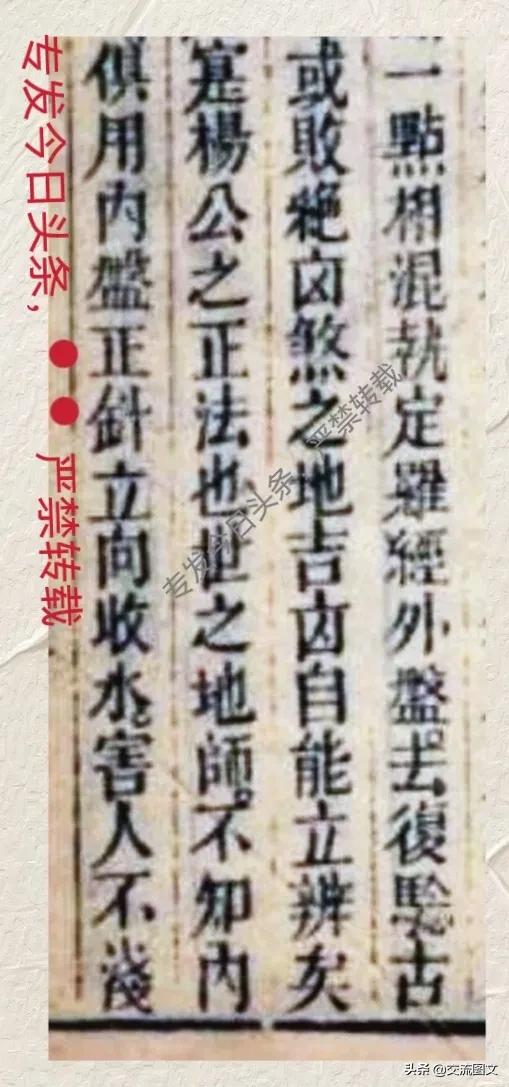 一點相混執定羅經外盤。去復騐古
或敗絶凶煞之地吉凶自能立辨矣
寔楊公之正法也世之地師。不知内
俱用内盤正針立向收水。害人不淺
专发今日头条,●●严禁转载
专发今日头条 严禁转载
头条 @交流图文